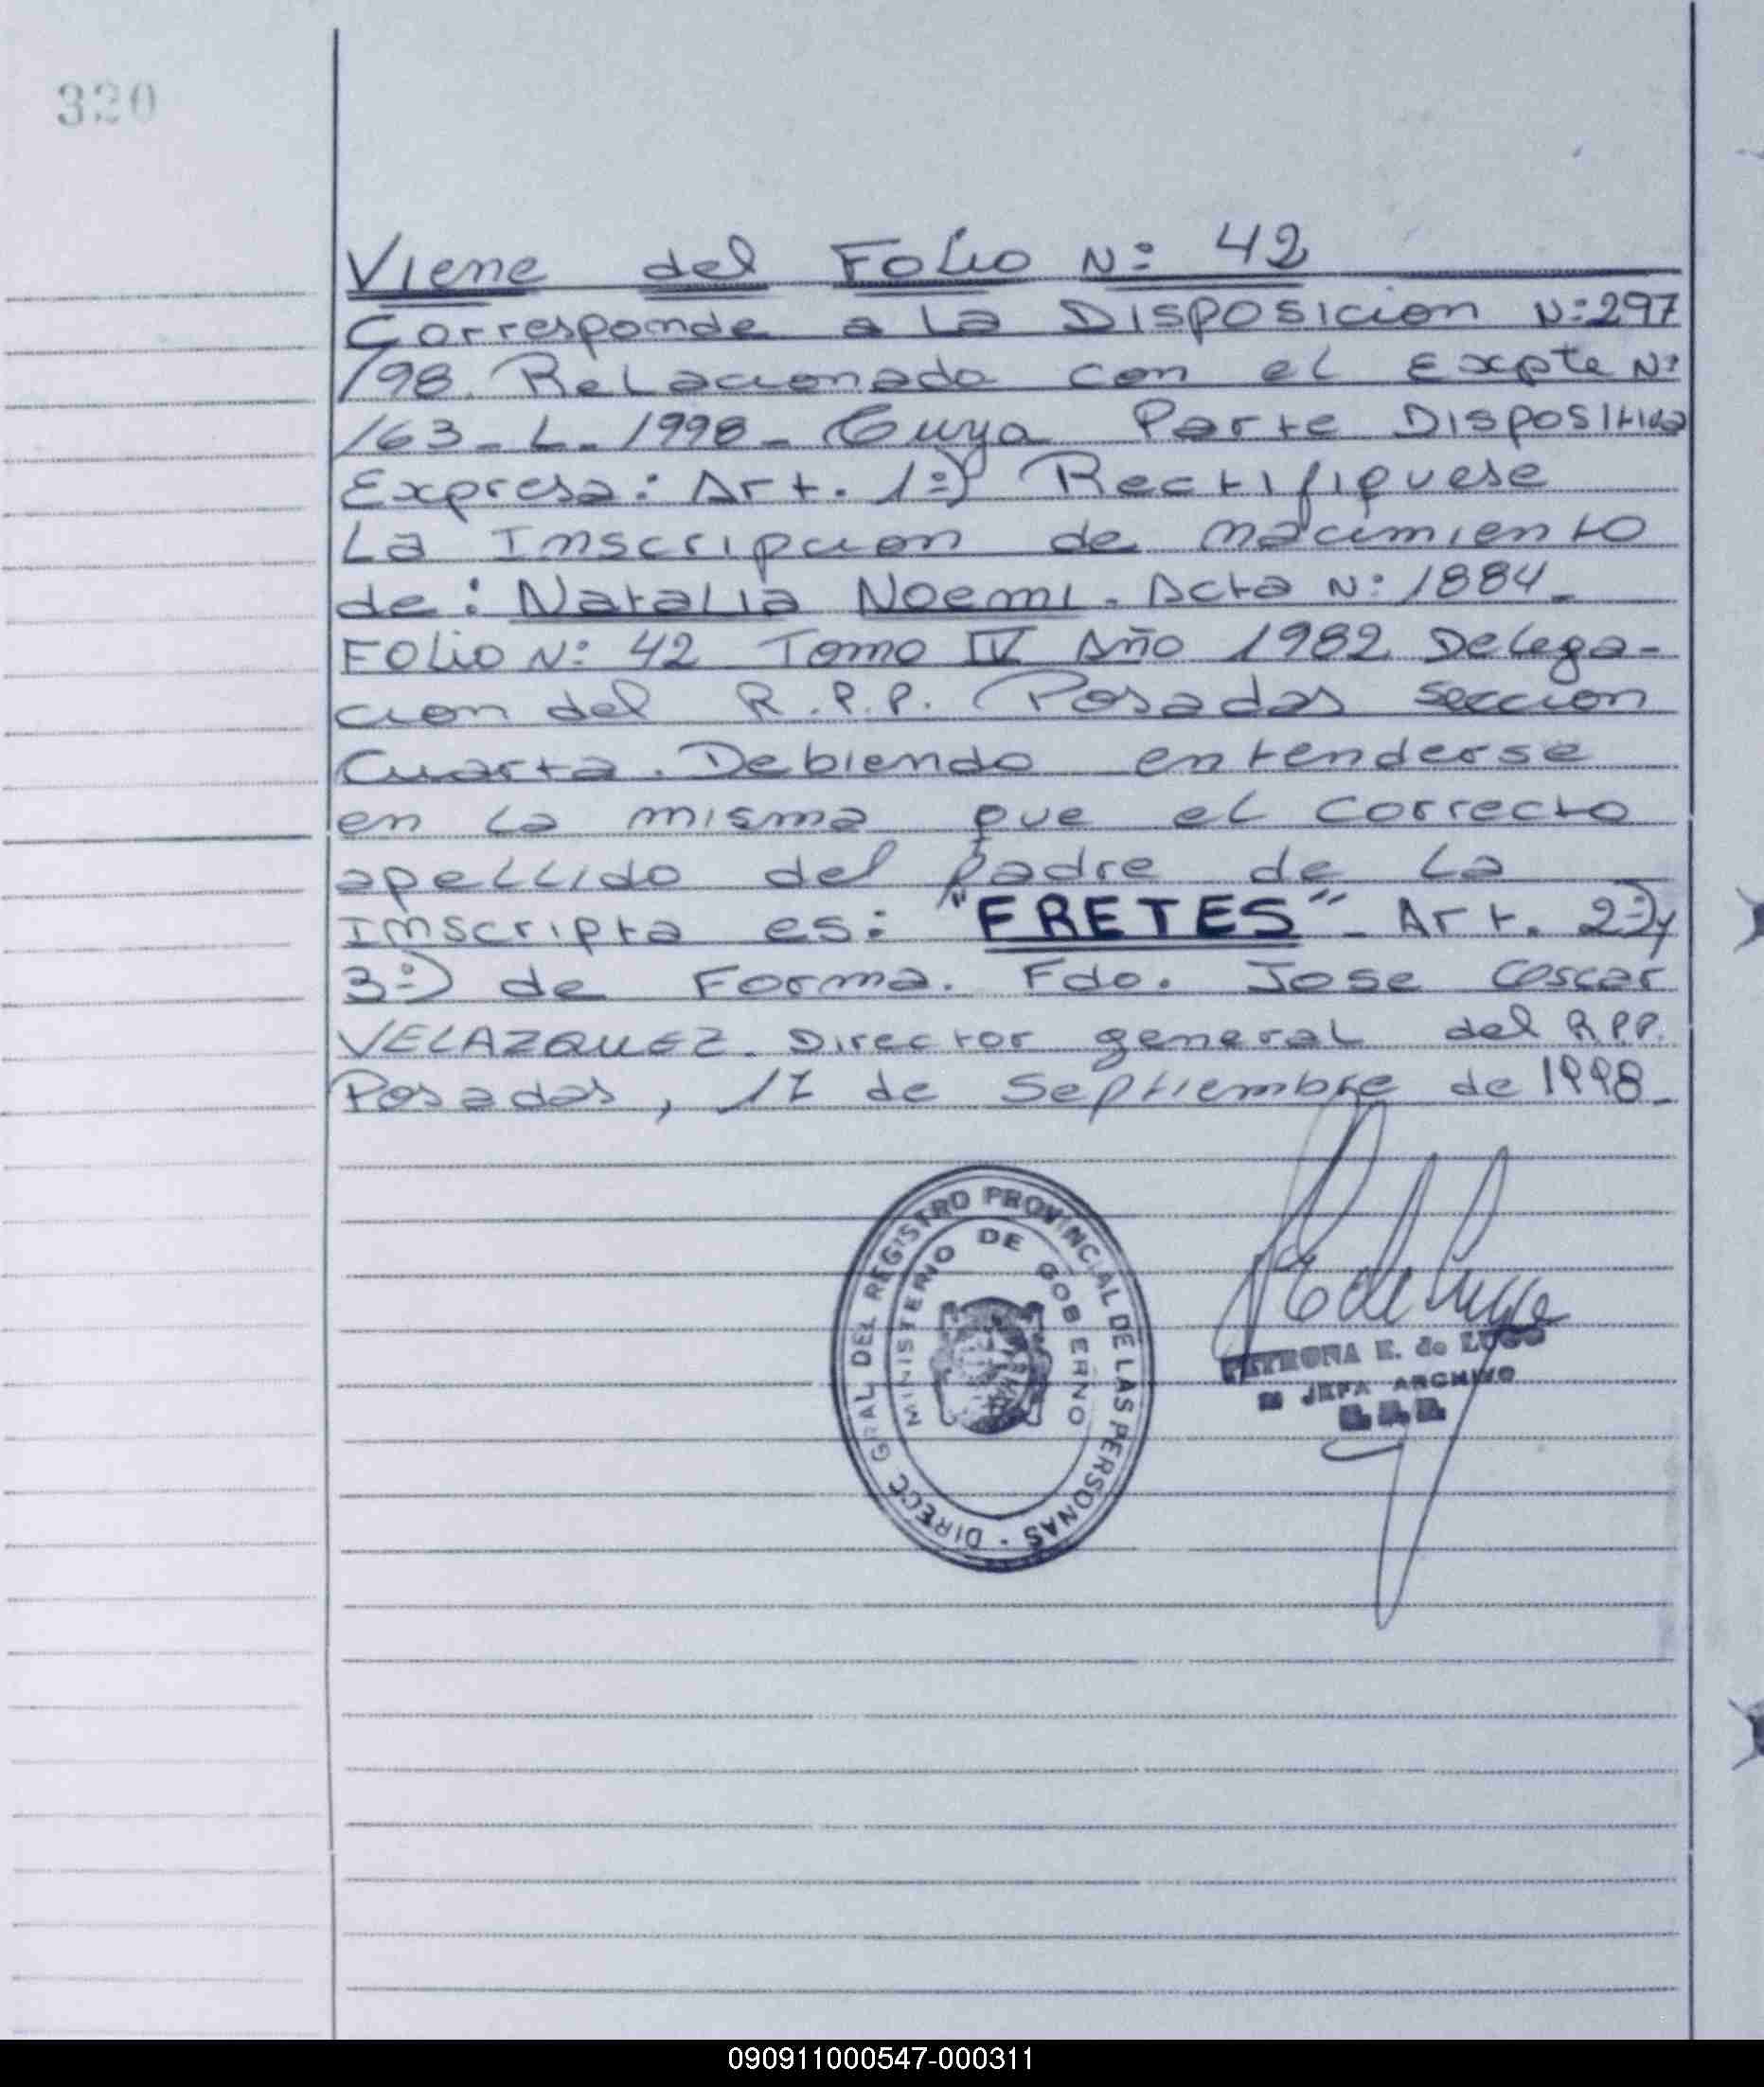 320
Viene del Folio N: 42
Corresponde a La Disposicion N:297
/98. Relacionado con el Expte N:
163-L-1998- Cuya Parte Dispositiva
Expresa: Art. 1:) Rectifiquese
La Inscripcion de nacimiento
de: Natalia Noemi. Acta N: 1884-
Folio N: 42 Tomo IV Año 1982 Delega-
cion del R.P.P. Posadas seccion
Cuarta. Debiendo entenderse
en La misma que el correcto
apellido del padre de La
Inscripta es: "FRETES"- Art. 2:)y
3:) de Forma. Fdo. Jose Oscar
VELAZQUEZ. Director general del R.P.P.
Posadas, 17 de Septiembre de 1998-
DIRECC GRAL DEL REGISTRO PROVINCIAL DE LAS PERSONAS -
MINISTERIO DE GOBIERNO
PETRONA E. de LUGO
JEFA ARCHIVO
090911000547-000311